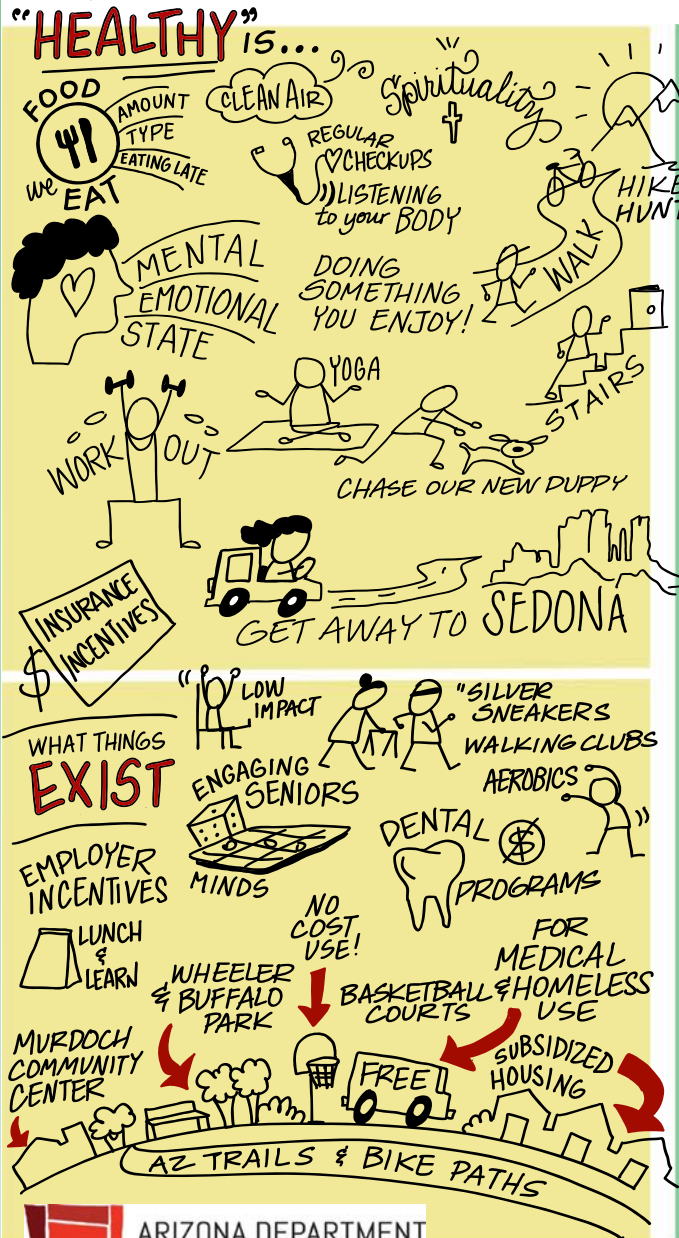 "HEALTHY" IS...
FOOD
we EAT
AMOUNT
TYPE
EATING LATE
CLEAN AIR
Spirituality
REGULAR
CHECKUPS
LISTENING
to your BODY
HIKE
HUNT
WALK
MENTAL
EMOTIONAL
STATE
DOING
SOMETHING
YOU ENJOY!
STAIRS
YOGA
WORK OUT
CHASE OUR NEW PUPPY
GET AWAY TO SEDONA
$
INSURANCE
INCENTIVES
WHAT THINGS
EXIST
"LOW
IMPACT
"SILVER
SNEAKERS
WALKING CLUBS
AEROBICS
ENGAGING
SENIORS
MINDS
DENTAL
$
PROGRAMS
EMPLOYER
INCENTIVES
LUNCH
&
LEARN
NO
COST
USE!
WHEELER
& BUFFALO
PARK
BASKETBALL
COURTS
FOR
MEDICAL
& HOMELESS
USE
MURDOCH
COMMUNITY
CENTER
FREE
SUBSIDIZED
HOUSING
AZ TRAILS & BIKE PATHS
ARIZONA DEPARTMENT